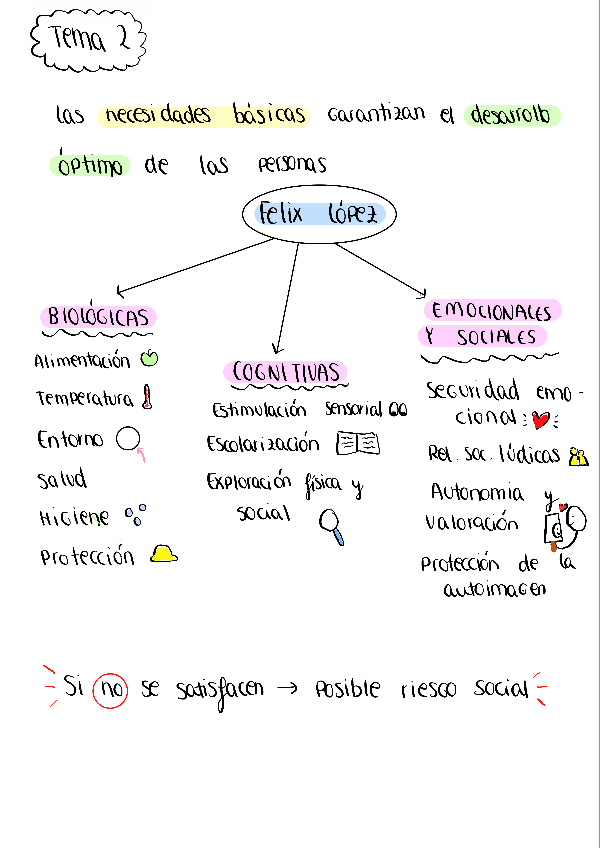 Tema 2
las necesidades básicas garantizan el desarrollo
óptimo de las personas
Felix López
BIOLÓGICAS
Alimentación
Temperatura
Entorno
Salud
Higiene
Protección
COGNITIVAS
Estimulación sensorial
Escolarización
Exploración física y
social
EMOCIONALES
Y SOCIALES
Seguridad emo-
cional
Rel. soc. lúdicas
Autonomia y
valoración
Protección de la
autoimagen
Si no se satisfacen → posible riesgo social